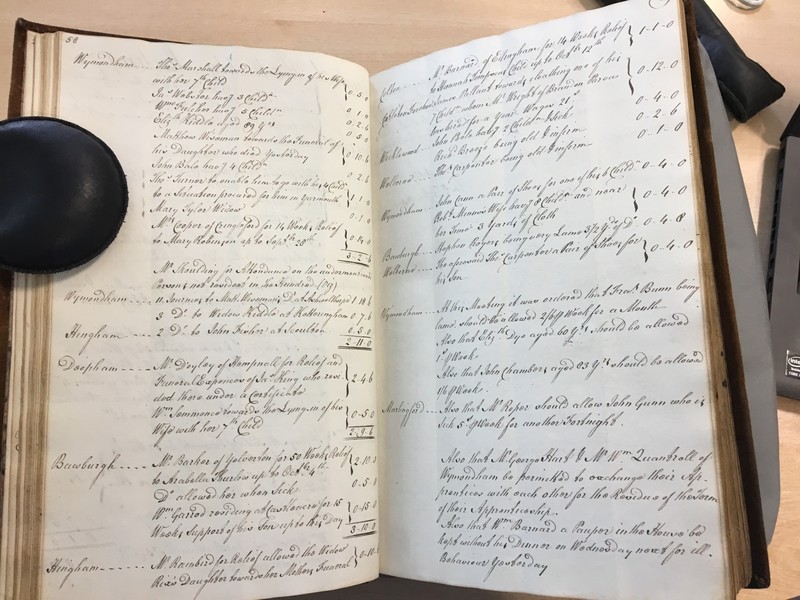 58
Wymondham Thos. Marshall towards the Lyingin of his Wife
with her 7th Child 0-5-0
Jas. Webster havg. 3 Childn.
Wm. Fulcher havg. 5 Childn. 0-1-0
Elizth. Kiddle aged 89 Yrs. 0-2-6
Matthew Wiseman towards the Funeral of
his Daughter who died Yesterday 0-10-6
John Bale havg. 4 Childn. 0-2-6
Thos. Turner to enable him to go with his 4 Childn.
to a Situation procured for him in Yarmouth 1-1-0
Mary Tyler Widow 0-1-0
Mr. Cooper of Cringleford for 14 Weeks Relief
to Mary Robinson up to Septr. 28th. 0-14-0
3-2-6
Mr. Skoulding for Attendance on the undermentioned
Persons not resident in the Hundred (Viz)
Wymondham 11 Journeys to Matt. Wiseman's Dr. at 1-18-6
3 Do. to Widow Kiddle at Ketteringham 0-7-6
Hingham 2 Do. to John Fisher at Scoulton 0-5-0
2-11-0
Deopham Mr. Doyley of Hempnall for Relief and
Funeral Expences of Jas. who resi
ded there under a Certificate 2-4-6
Wm. Simmonce towards the Lyingin of his
Wife with her 7th Child 0-5-0
2-9-6
Bawburgh Mr. Barker of Yelverton for 50 Weeks Relief
to Arabella Thurlow up to Octr. 4th. 2-10-0
Do. allowed her when Sick 0-5-0
Wm. Garrod residing at for 15
Weeks Support of his Son up to this day 0-15-0
3-10-0
Hingham Mr. Rainbird for Relief allowed the Widow
Rix's Daughter towards her Mothers Funeral 0-10-0
Colton Mr. Barnard of Edingham for 14 Weeks Relief
to Hannah Simpsons Child up to Octr. 12th. 1-1-0
Lance Pallant towards cloathing one of his
7 Childn. whom Mr. Wright of Brandon Parva
has hired for a Year Wages 21s. 0-12-0
John Bale havg. 2 Childn. & Sick 0-4-0
Wicklewood Richd. Breeze being old & infirm 0-2-6
Welborne Thos. Carpenter being old & infirm 0-1-0
Wymondham John Cann a Pair of Shoes for one of his 6 Childn. 0-4-0
Robt. Minns's Wife havg. 8 Childn. and near
her time 3 Yards of Cloth 0-4-0
Bawburgh Stephen Boyce being very Lame 3 1/2 Yds. of Do. 0-4-8
Welborne The aforesaid Thos. Carpenter a Pair of Shoes for
his Son 0-4-0
Wymondham At this Meeting it was ordered that Fras. Bunn being
lame should be allowed 2/6 P Week for a Month
Also that Elizth. Dye aged 60 Yrs. should be allowed
1s. P Week
Also that John Chambers aged 83 Yrs. should be allowed
1/6 P Week.
Morningford Also that Mr. Roper should allow John Gunn who is
Sick 5s. P Week for another Fortnight.
Also that Mr. George Hart & Mr. Wm. Quantrell of
Wymondham be permitted to exchange their Ap-
prentices with each other for the Residue of the Term
of their Apprenticeship.
Also that Wm. Barnard a Pauper in the House be
kept without his Dinner on Wednesday next for ill
Behaviour Yesterday